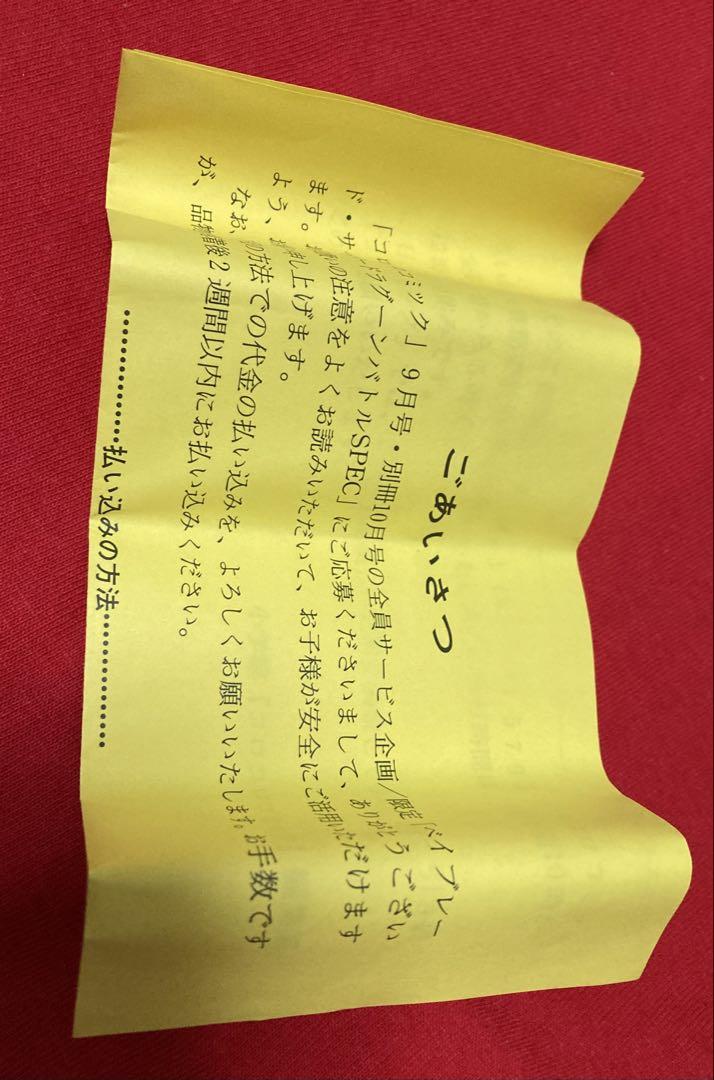 ごあいさつ
「コロコロコミック」9月号・別冊10月号の全員サービス企画/限定「ベイブレー
ド・サ ドラグーンバトルSPEC」にご応募くださいまして、ありがとうござい
ます。 の注意をよくお読みいただいて、お子様が安全にご活用いただけます
よう、 し上げます。
なお、 の方法での代金の払い込みを、よろしくお願いいたします。お手数です
が、 品物着後2週間以内にお払い込みください。
・・・・・・・・・・・・・・・払い込みの方法・・・・・・・・・・・・・・・